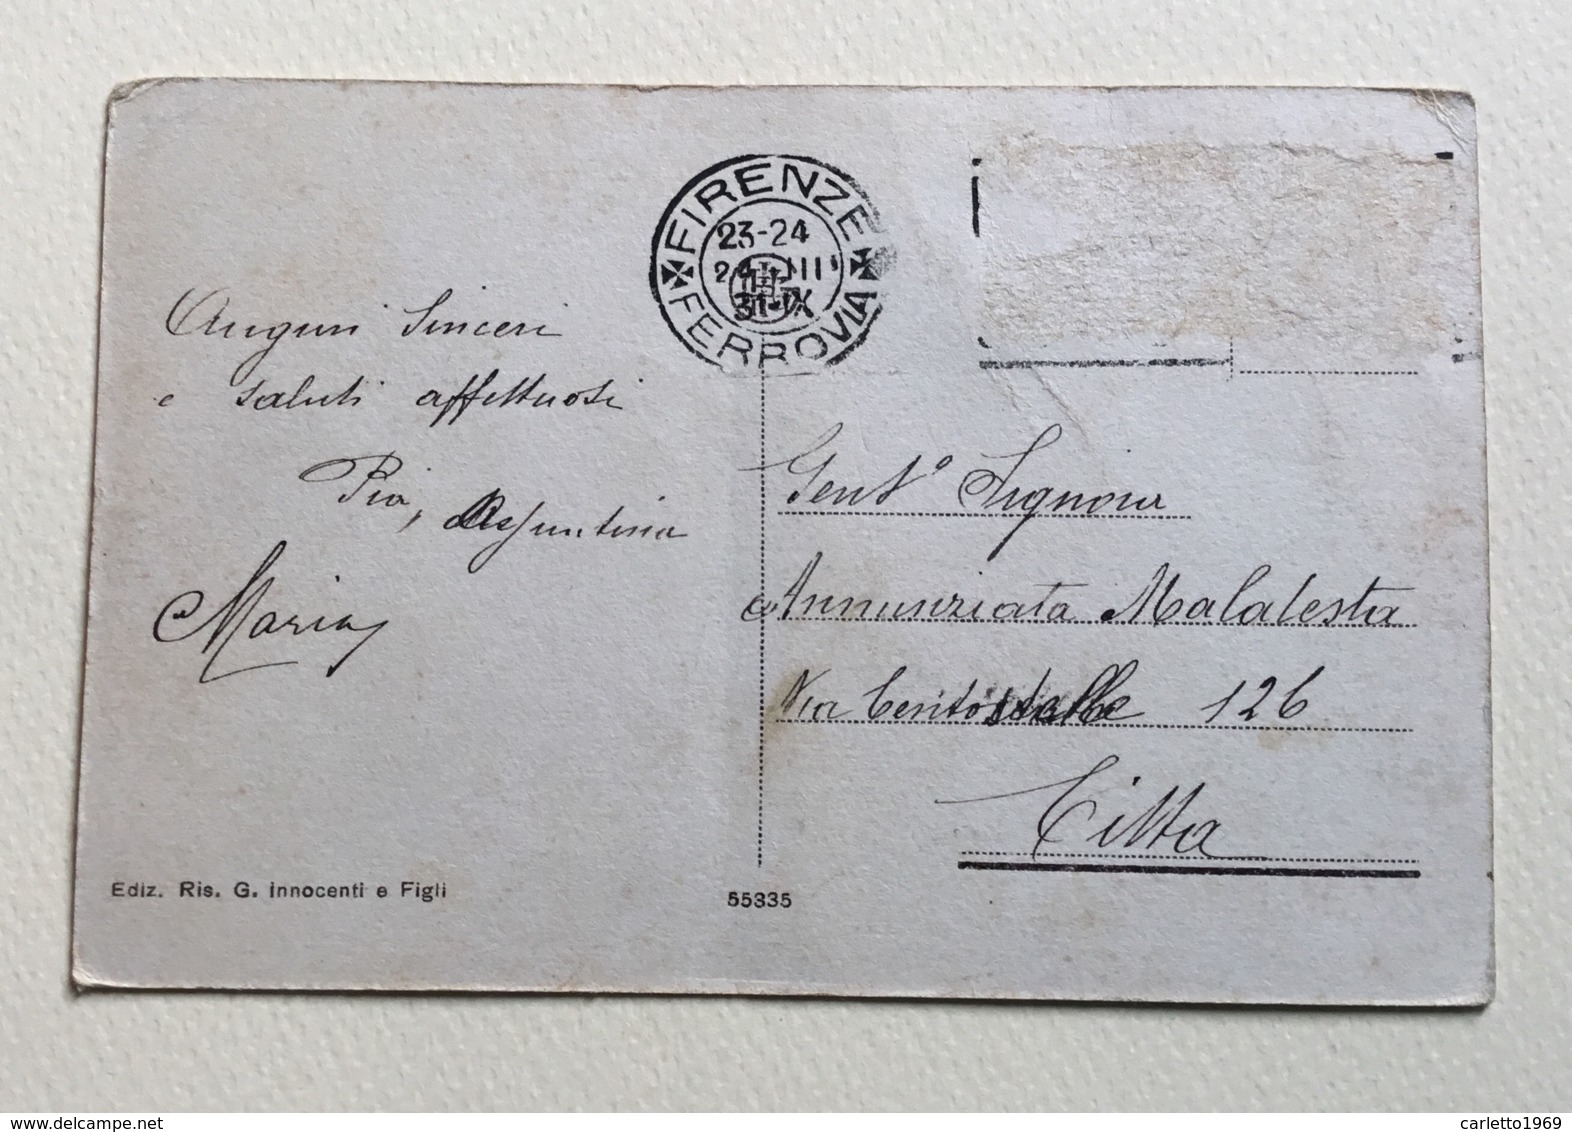 FIRENZE
23-24
31-IX
FERROVIA
Auguri Sinceri
e saluti affettuosi
Pia, Assuntina
Maria
Gent° Signora
Annunziata Malatesta
Via Centostelle 126
Città
Ediz. Ris. G. Innocenti e Figli
55335
delcampe.net
carletto1969